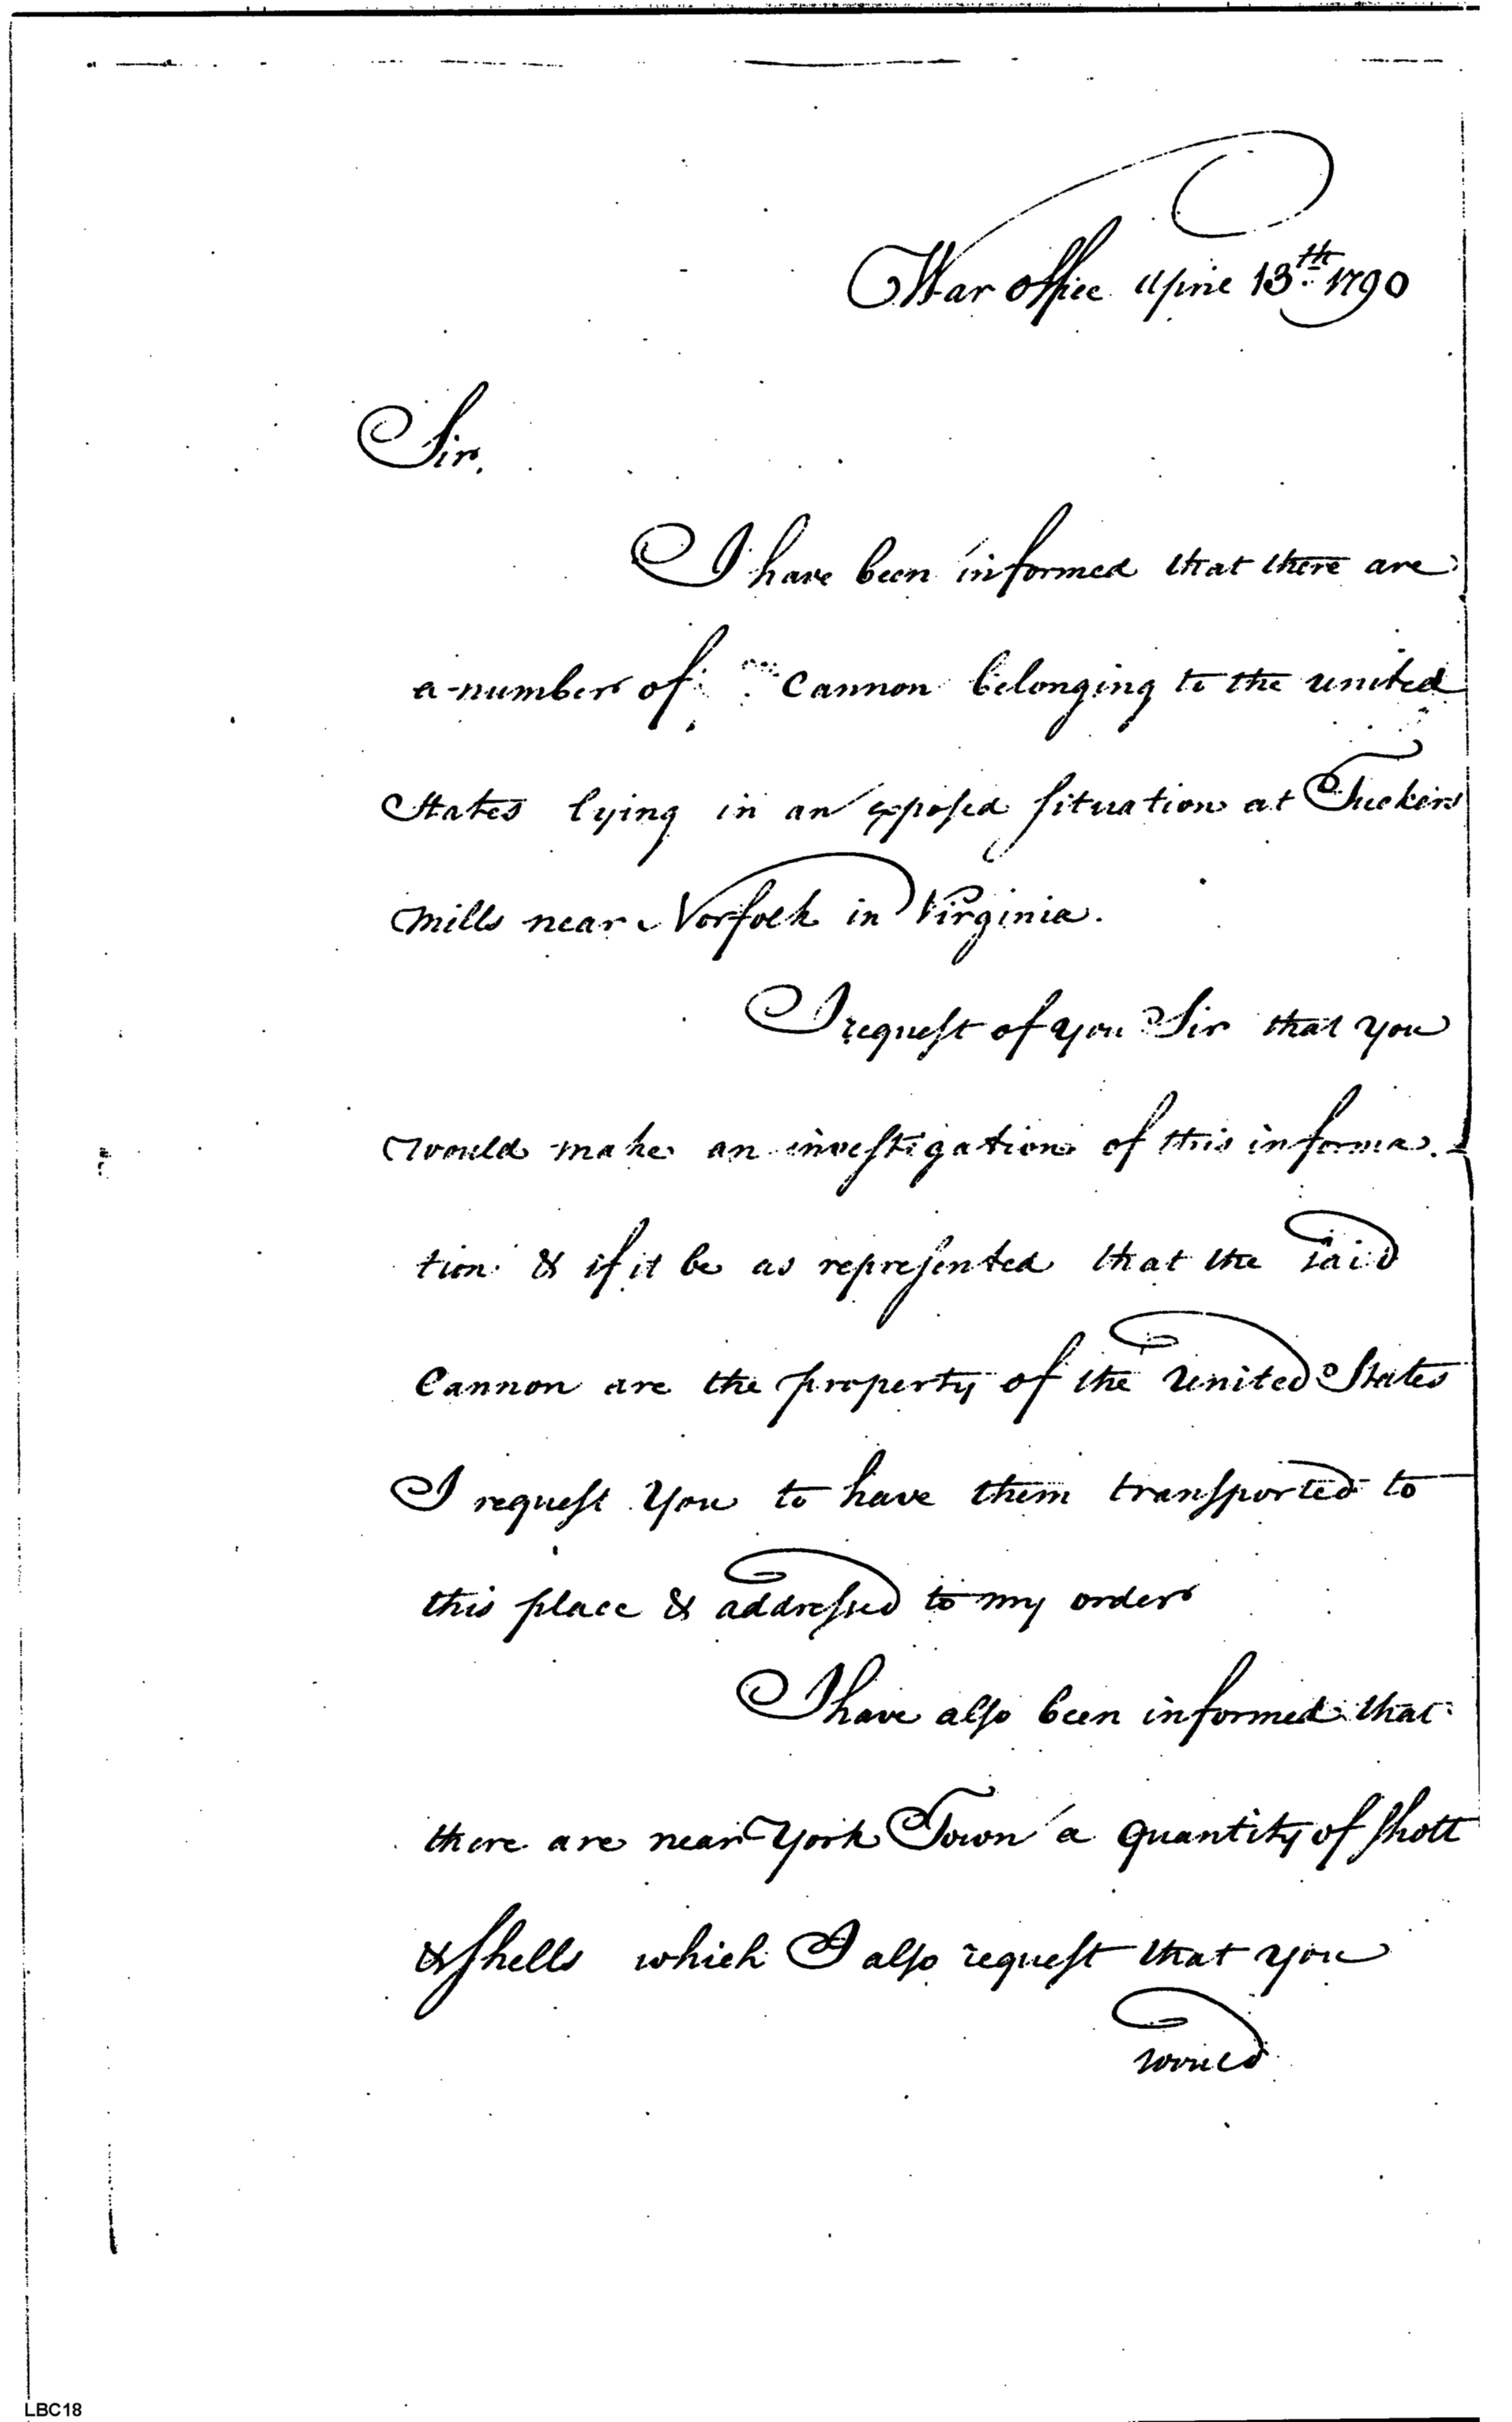 War office April 13th. 1790
Sir,
I have been informed that there are
a number of Cannon belonging to the united
States lying in an exposed situation at Tuckers
Mills near Norfolk in Virginia.
I request of you Sir that you
would make an investigation of this informa-
tion & if it be as represented that the said
Cannon are the property of the United States
I request You to have them transported to
this place & addressed to my order
I have also been informed that
there are near York Town a quantity of shott
& shells which I also request that you
would
LBC18